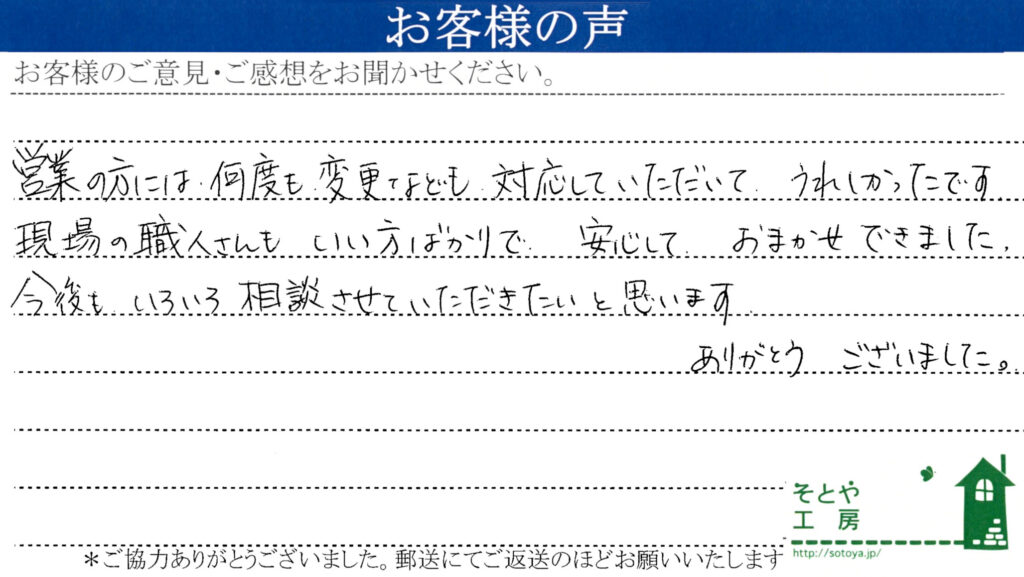 お客様の声
お客様のご意見・ご感想をお聞かせください。
営業の方には、何度も変更なども対応していただいて、うれしかったです。
現場の職人さんもいい方ばかりで、安心して、おまかせできました。
今後もいろいろ相談させていただきたいと思います。
ありがとうございました。
そとや
工房
http://sotoya.jp/
＊ご協力ありがとうございました。郵送にてご返送のほどお願いいたします